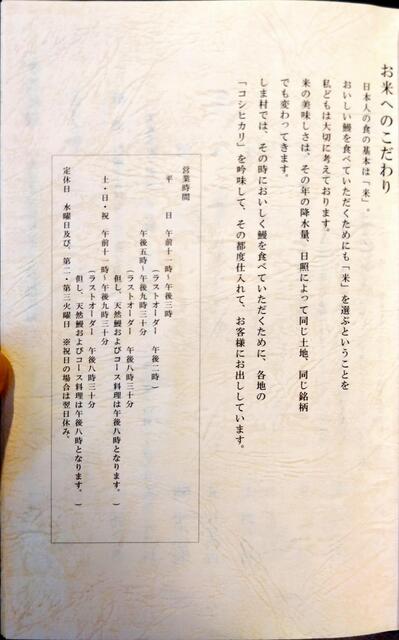 お米へのこだわり
日本人の食の基本は「米」。
おいしい鰻を食べていただくためにも「米」を選ぶということを
私どもは大切に考えております。
米の美味しさは、その年の降水量、日照によって同じ土地、同じ銘柄
でも変わってきます。
しま村では、その時においしく鰻を食べていただくために、各地の
「コシヒカリ」を吟味して、その都度仕入れて、お客様にお出ししています。
営業時間
平 日 午前十一時～午後三時
（ラストオーダー 午後二時）
午後五時～午後九時三十分
（ラストオーダー 午後八時三十分
但し、天然鰻およびコース料理は午後八時となります。）
土・日・祝 午前十一時～午後九時三十分
（ラストオーダー 午後八時三十分
但し、天然鰻およびコース料理は午後八時となります。）
定休日 水曜日及び、第二・第三火曜日 ※祝日の場合は翌日休み。